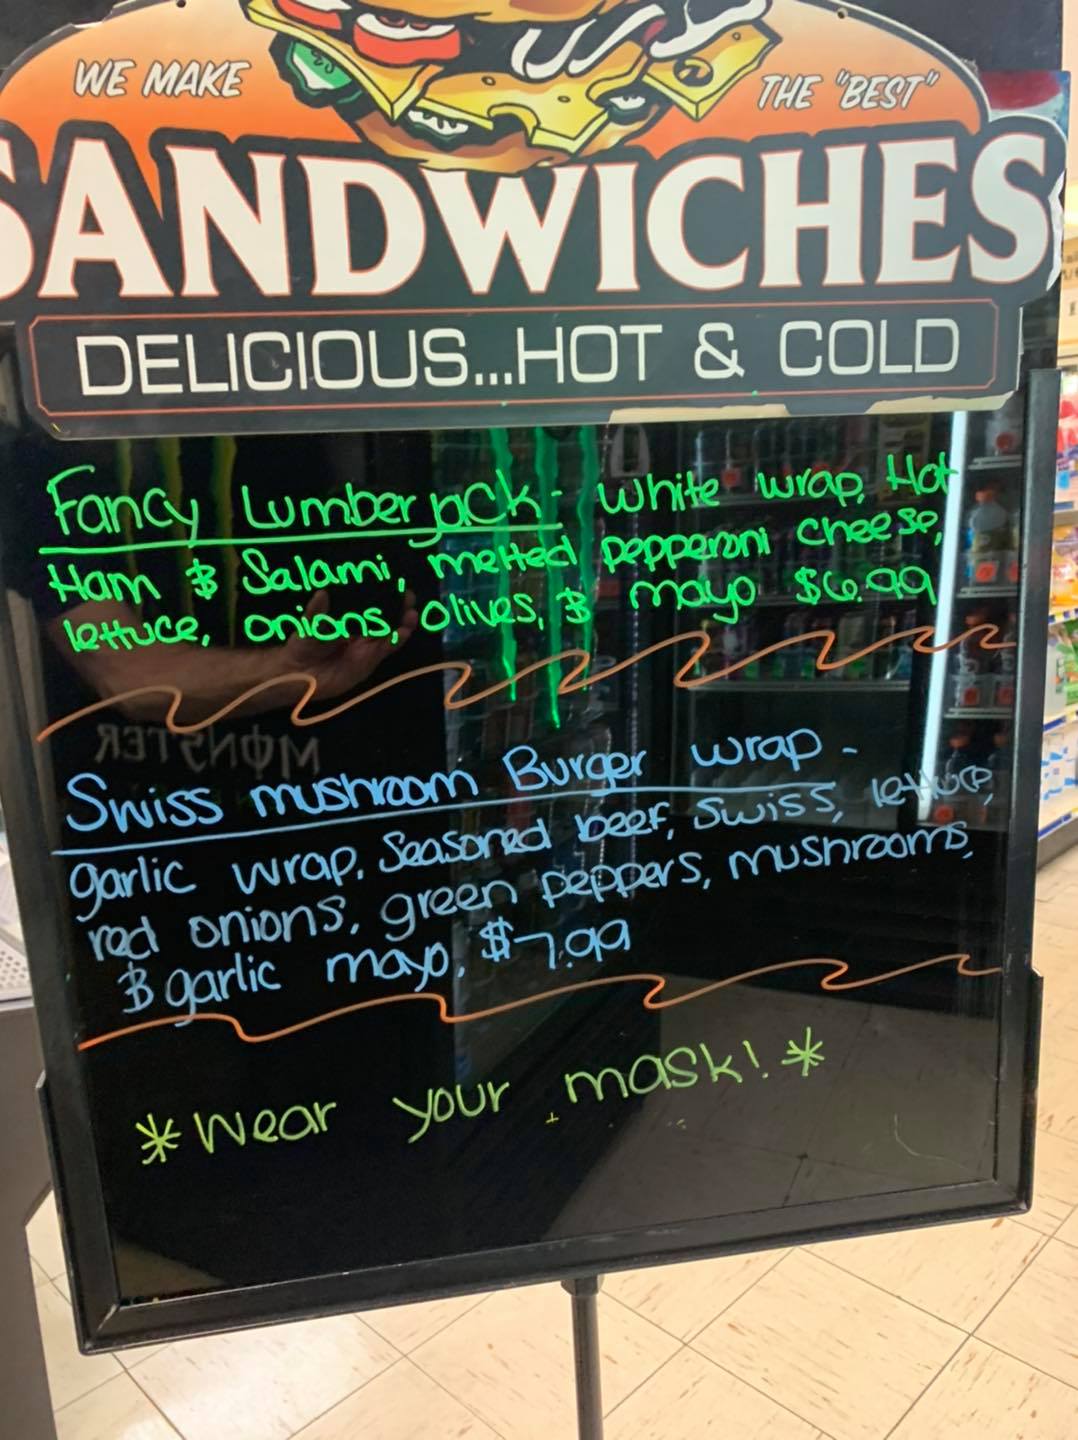 WE MAKE THE "BEST"
SANDWICHES
DELICIOUS...HOT & COLD
Fancy Lumberjack - White wrap, Hot
Ham & Salami, melted pepperoni cheese,
lettuce, onions, olives, & mayo $6.99
MONSTER
Swiss mushroom Burger wrap -
garlic wrap, Seasoned beef, Swiss, lettuce,
red onions, green peppers, mushrooms,
& garlic mayo. $7.99
*Wear your mask!*